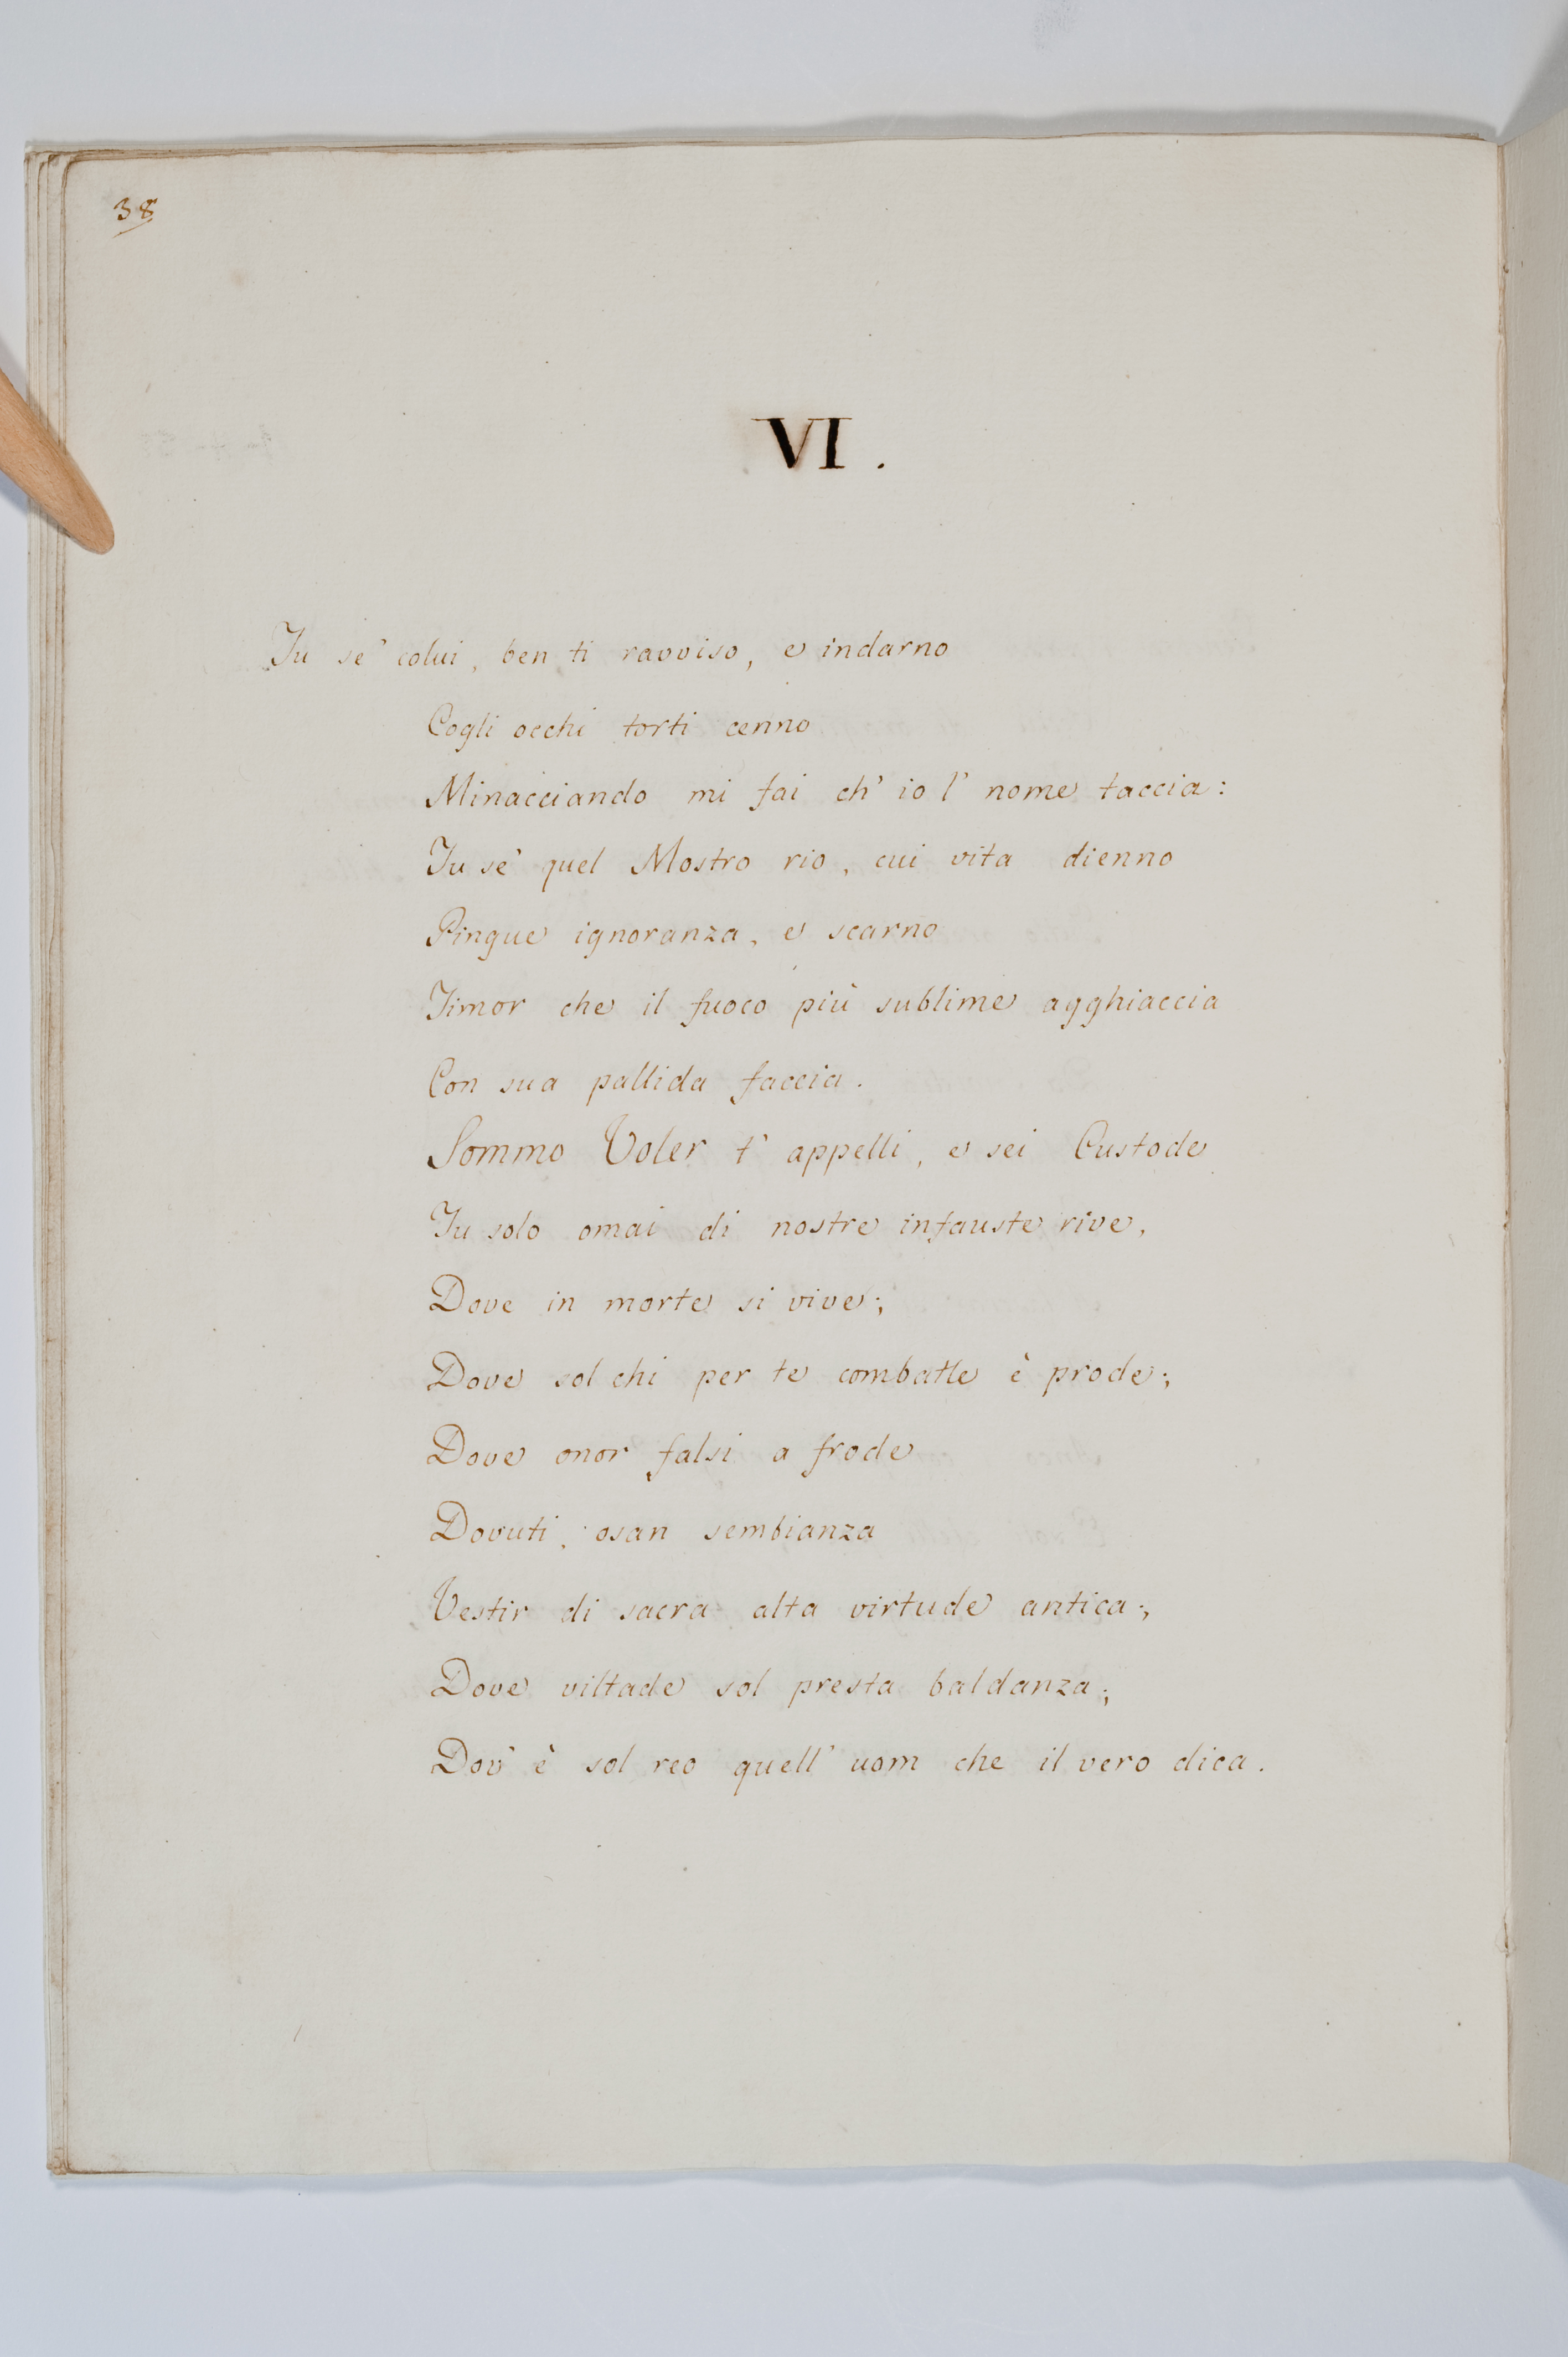 38
VI.
Tu se' colui, ben ti ravviso, e indarno
Cogli occhi torti cenno
Minacciando mi fai ch' io l' nome taccia:
Tu se' quel Mostro rio, cui vita dienno
Pingue ignoranza, e scarno
Timor che il fuoco più sublime agghiaccia
Con sua pallida faccia.
Sommo Voler t' appelli, e sei Custode
Tu solo omai di nostre infauste rive,
Dove in morte si vive;
Dove sol chi per te combatte è prode;
Dove onor falsi a frode
Dovuti, osan sembianza
Vestir di sacra alta virtude antica;
Dove viltade sol presta baldanza;
Dov' è sol reo quell' uom che il vero dica.